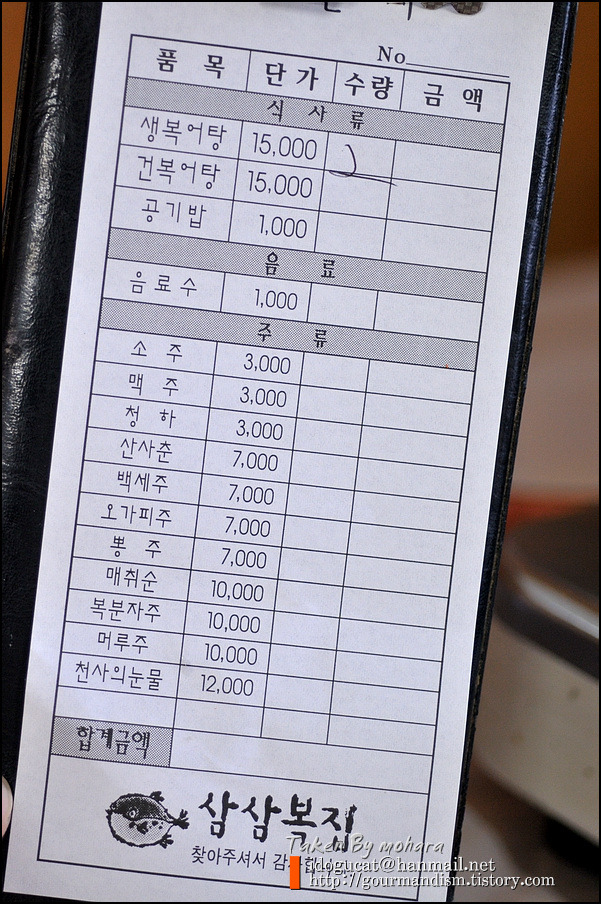 No
품 목 단 가 수량 금 액
식 사 류
생복어탕 15,000
건복어탕 15,000
공기밥 1,000
음 료
음료수 1,000
주 류
소 주 3,000
맥 주 3,000
청 하 3,000
산사춘 7,000
백세주 7,000
오가피주 7,000
뽕 주 7,000
매취순 10,000
복분자주 10,000
머루주 10,000
천사의눈물 12,000
합계금액
삼삼복집
Taken By mohara
찾아주셔서
jdogucat@hanmail.net
http://gourmandism.tistory.com